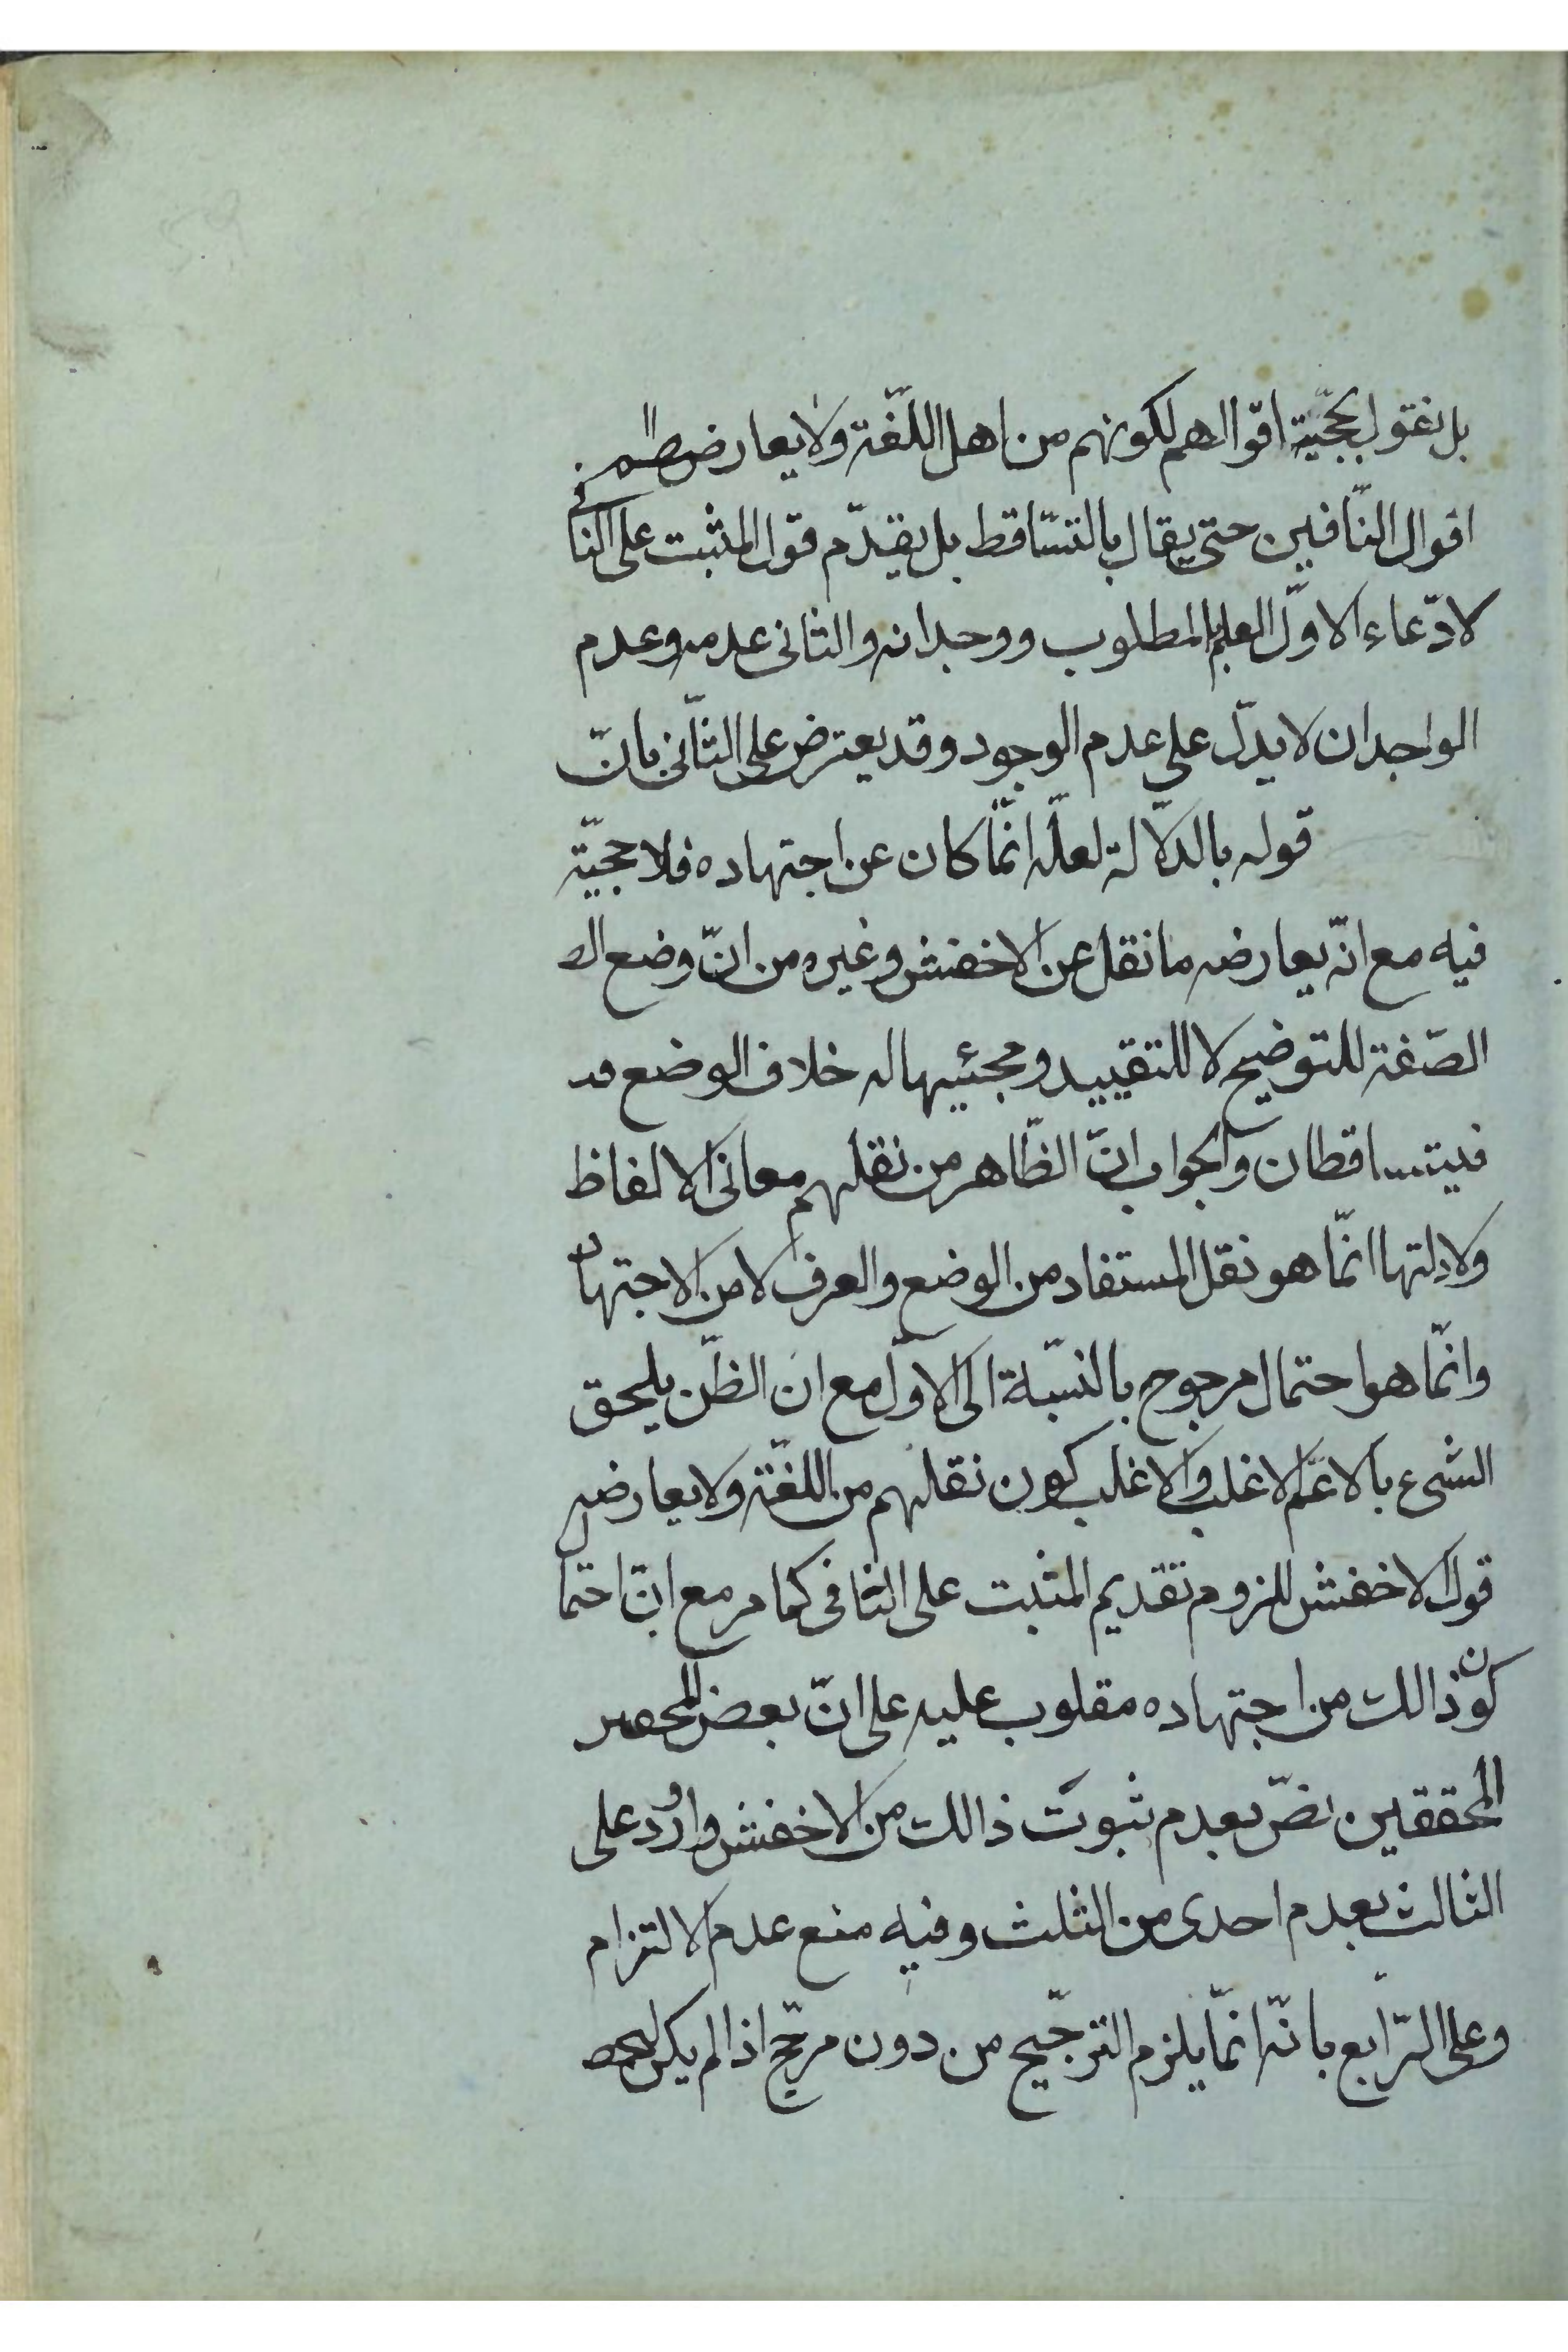 بل نقول بحجّية اقوالهم لكونهم من اهل اللّغة ولا يعارض
اقوال النّافين حتى يقال بالتسّاقط بل يقدّم قول المثبت على النافي
لادّعاء الاوّل العلم بالمطلوب ووجدانه والثانى عدمه وعدم
الواجدان لا يدلّ على عدم الوجود وقد يعترض على الثّانى بانّ
قوله بالدّلالة لعلّه انّما كان عن اجتهاده فلا حجيّة
فيه مع انّه يعارضه ما نقل عن الاخفش وغيره من انّ وضع
الصّفة للتوضيح لا للتقييد ومجئيها له خلاف الوضع
فيتساقطان والجواب انّ الظّاهر من نقلهم معانى الالفاظ
ولادلتها انّما هو نقل المستفاد من الوضع والعرف لا من الاجتهاد
وانّما هو احتمال مرجوح بالنسّبة الى الاوّل مع ان الظّن يلحق
الشىء بالاعمّ الاغلب والاغلب كون نقلهم من اللّغة ولا يعارضه
قول الاخفش للزوم تقديم المثبت على النافى كما مر مع انّ احتمال
كون ذالك من اجتهاده مقلوب عليه على انّ بعض
المحققين نصّ بعدم ثبوت ذالك من الاخفش واورد على
الثالث بعدم احدى من الثلث وفيه منع عدم الالتزام
وعلى الرّابع بانّه انّما يلزم الترجّيح من دون مرجّح اذا لم يكن